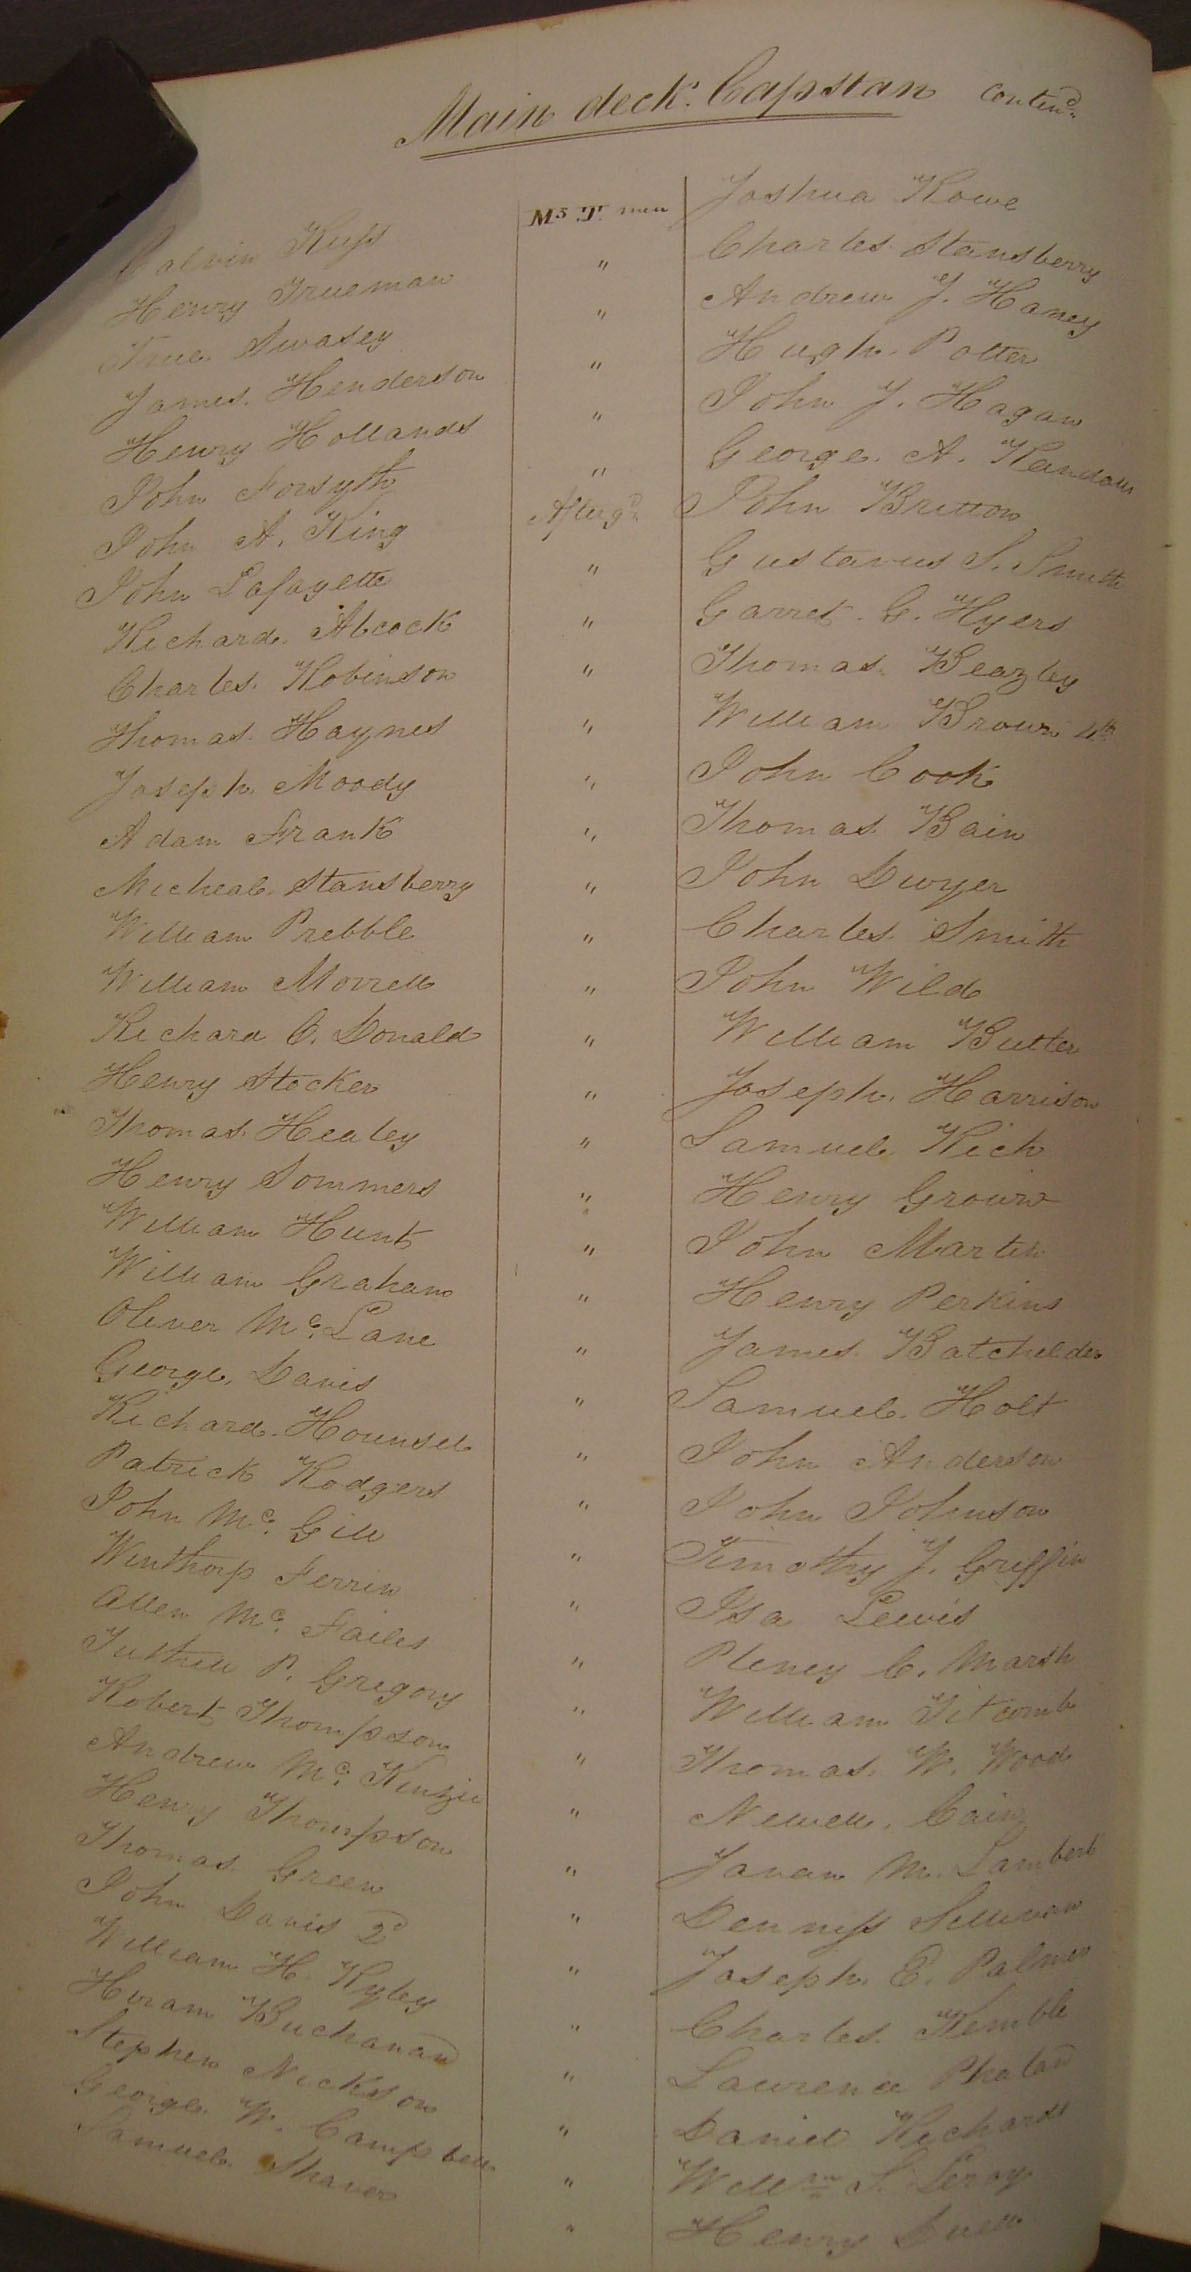 Main deck Capstan Contind
Calvin Huss Ms Tr men Joshua Rowe
Henry Trueman " Charles Stansberry
True Swasey " Andrew J. Haney
James Henderson " Hugh Potter
Henry Hollands " John J. Hagan
John Forsyth " George A. Randall
John A. King Aftergd John Britton
John Lafayette " Gustavus S. Smith
Richard Alcock " Garret G. Hyers
Charles Robinson " Thomas Beazley
Thomas Haynes " William Brown 4th
Joseph Moody " John Cook
Adam Frank " Thomas Bain
Micheal Stansberry " John Dwyer
William Prebble " Charles Smith
William Morrell " John Wild
Richard C. Donald " William Butler
Henry Stocker " Joseph Harrison
Thomas Healey " Samuel Rich
Henry Sommers " Henry Grouw
William Hunt " John Martin
William Graham " Henry Perkins
Oliver Mc. Lane " James Batchelder
George Davis " Samuel Holt
Richard Hounsel " John Anderson
Patrick Rodgers " John Johnson
John Mc. Gill " Timothy J. Griffin
Winthorp Ferrin " Isa Lewis
Allen Mc. Failes " Pleney C. Marsh
Tuthill P. Gregory " William Titcomb
Robert Thompson " Thomas W. Wood
Andrew Mc. Kinzie " Newell Cain
Henry Thompson " Javan M. Lambert
Thomas Green " Denniss Sullivan
John Davis 2d " Joseph E. Palmer
William H. Ryley " Charles Kemble
Hiram Buchanan " Lawrence Phalan
Stephen Nickson " Daniel Richards
George W. Campbell " Willm S. Leroy
Samuel Shaver " Henry Duell